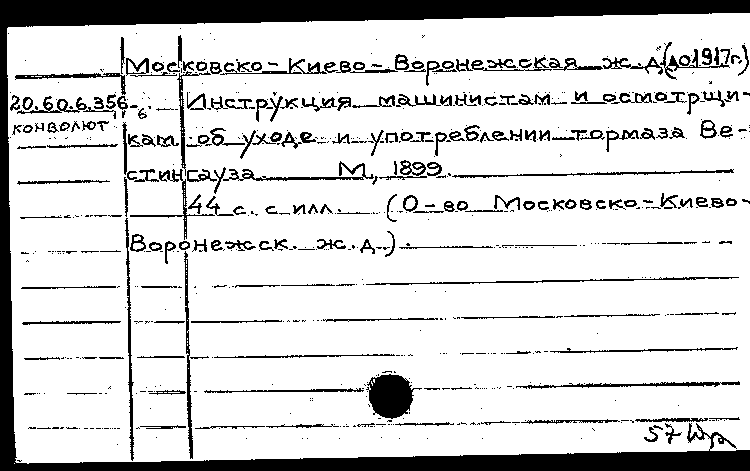 Московско-Киево-Воронежская ж.д. (до 1917г.)
20.60.6.356 Инструкция машинистам и осмотрщи-
конволют 6
кам об уходе и употреблении тормаза Ве-
стингауза. М., 1899.
44 с. с илл. (О-во Московско-Киево-
Воронежск. ж.д.).
57